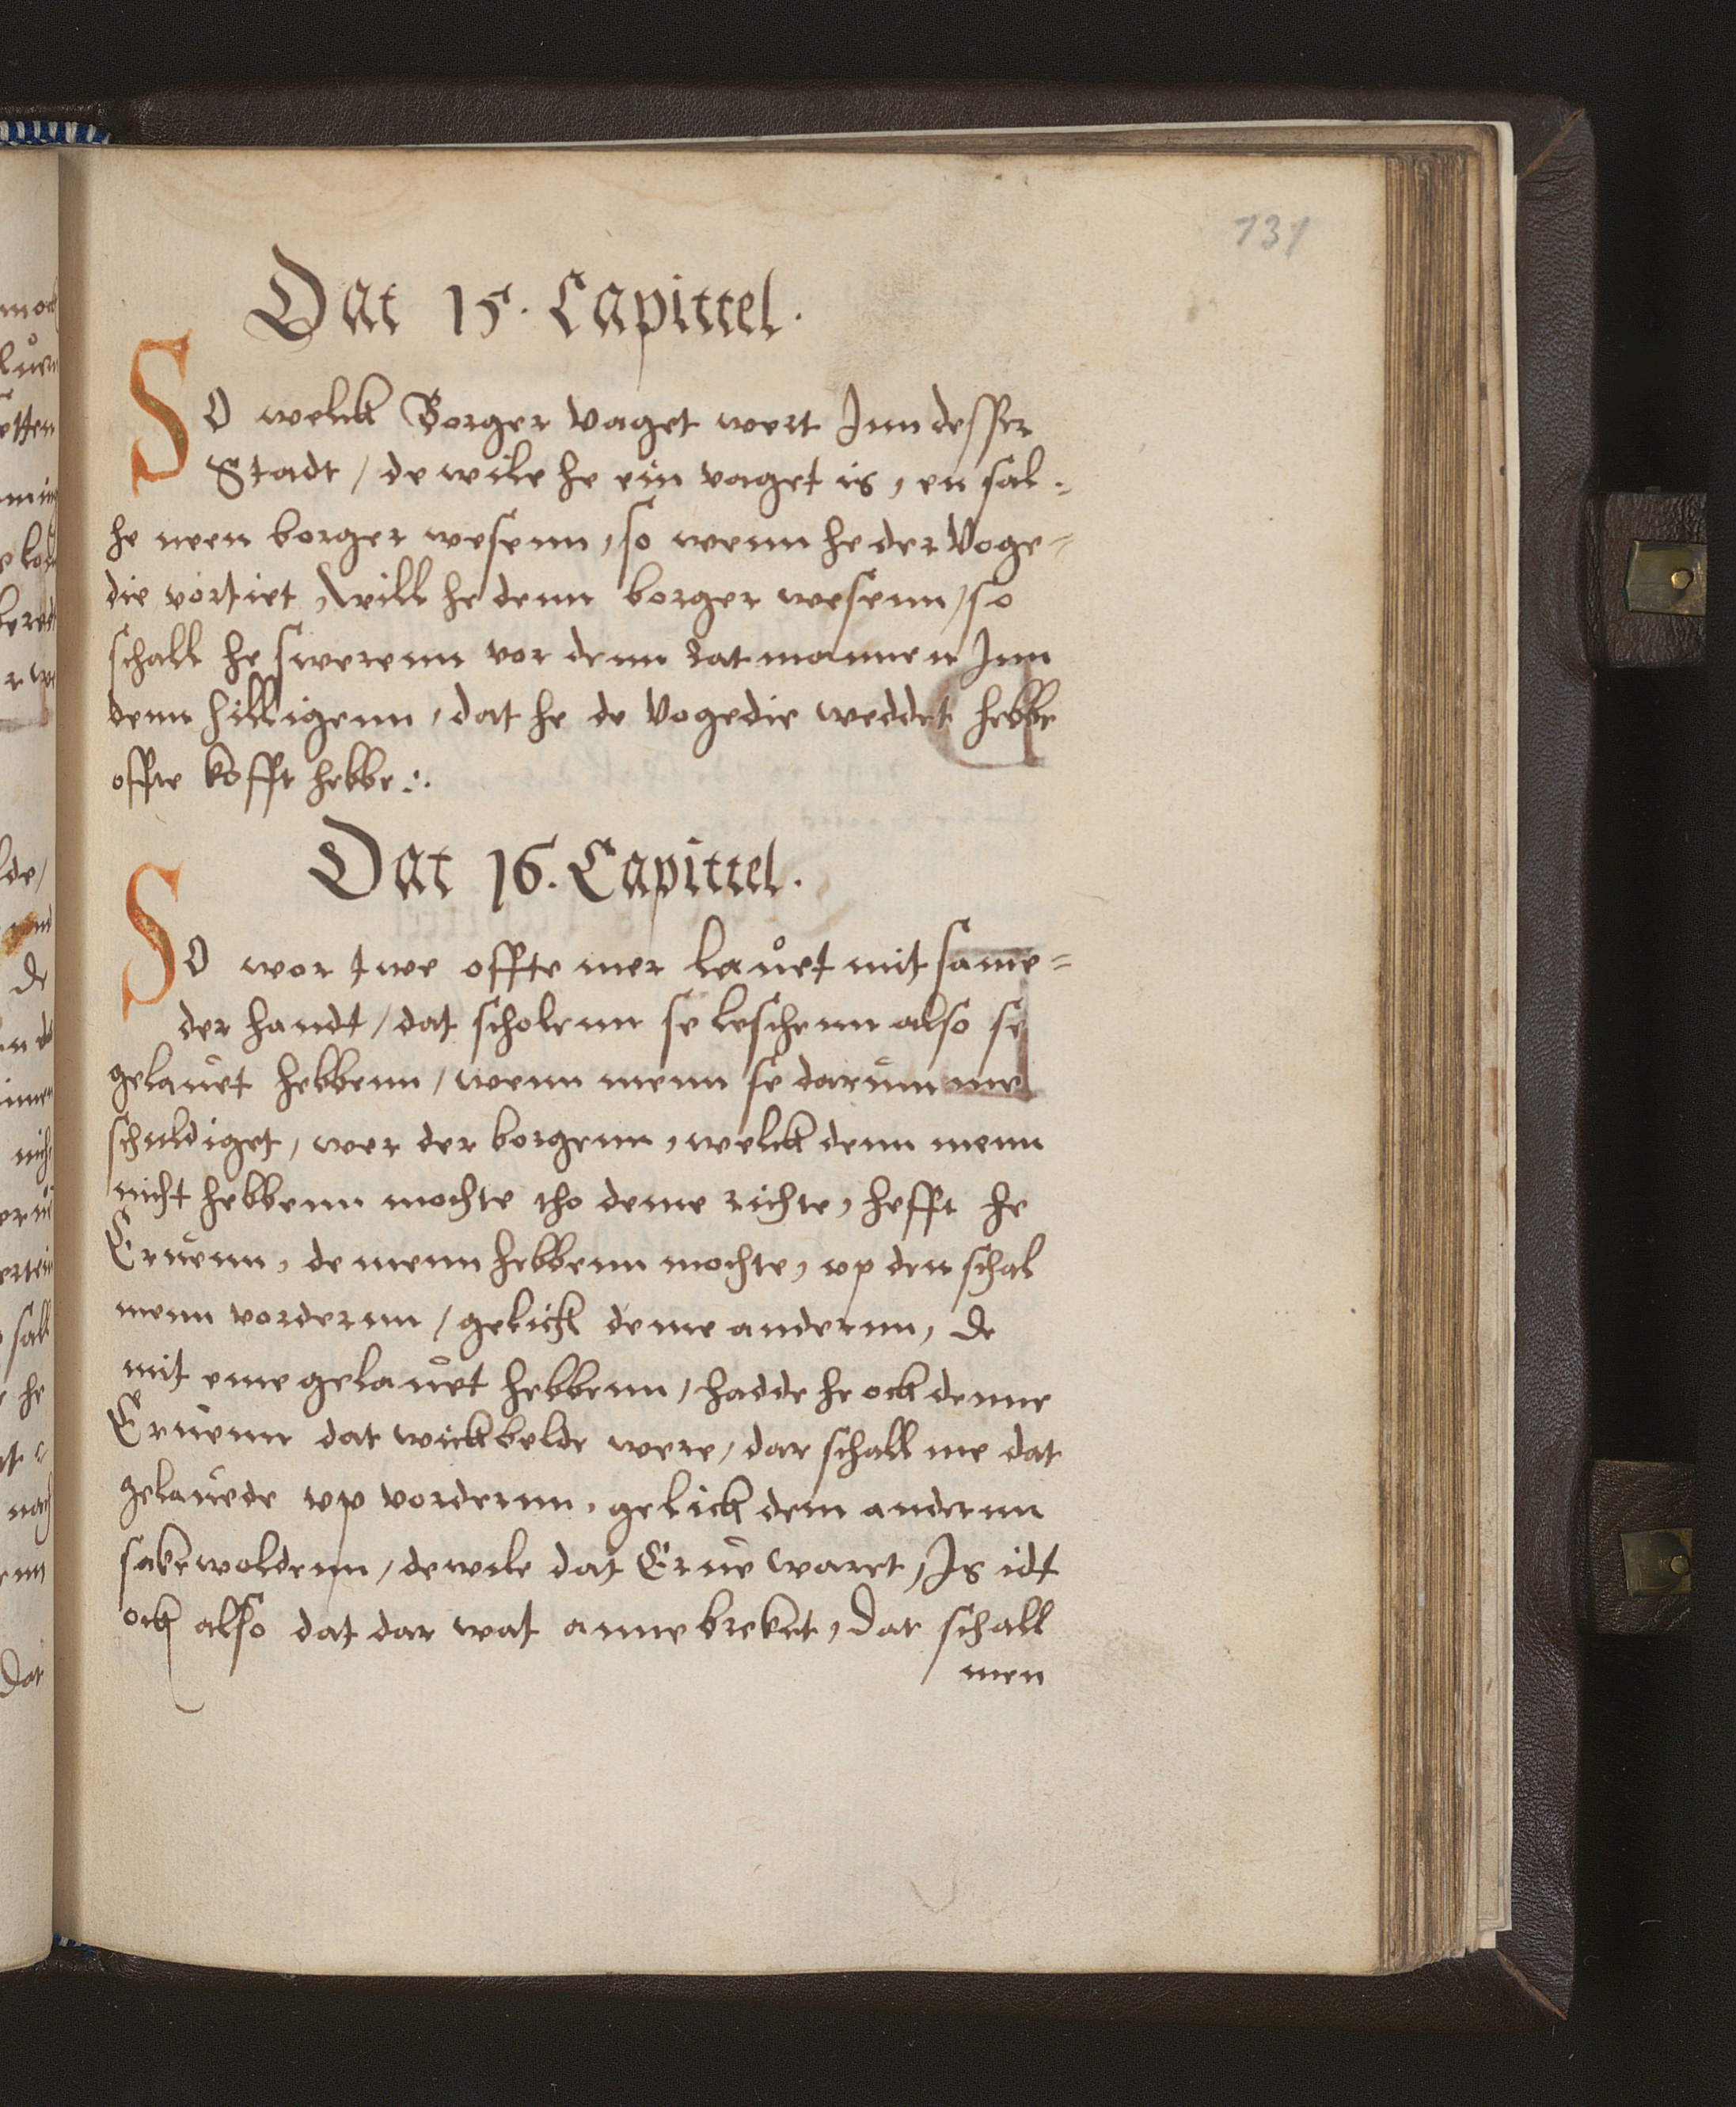 131
Dat 15. Capittel.
SO welck Borger Vaget wert Inn desser
Stadt / de wile he ein vaget is, en sal-
he neen borger wesenn, so wenn he der Voge=
die vortiet, Will he denn borger wesenn / so
schall he swerenn vor denn Ratmannen Inn
denn hilligenn, dat he de Vogedie weddet hebbe
offte kofft hebbe :.
Dat 16. Capittel.
SO wor twe offte mer lauet mit same=
der handt / dat scholenn se leschenn also se
gelauet hebbenn / wenn menn se darumme
schuldiget, wer der borgenn, welck denn menn
nicht hebbenn mochte tho deme richte, hefft he
Eruenn, de menn hebbenn mochte, vp den schal
menn vordernn / gelick deme andernn, de
mit eme gelauet hebbenn / hadde he ock denne
Eruenn dat wickbelde were / dar schall me dat
gelauede vp vordernn, gelick dem andernn
sakewoldenn / dewile dat Erue waret, Is idt
ock also dat dar wat anne breket, Dat schall
men